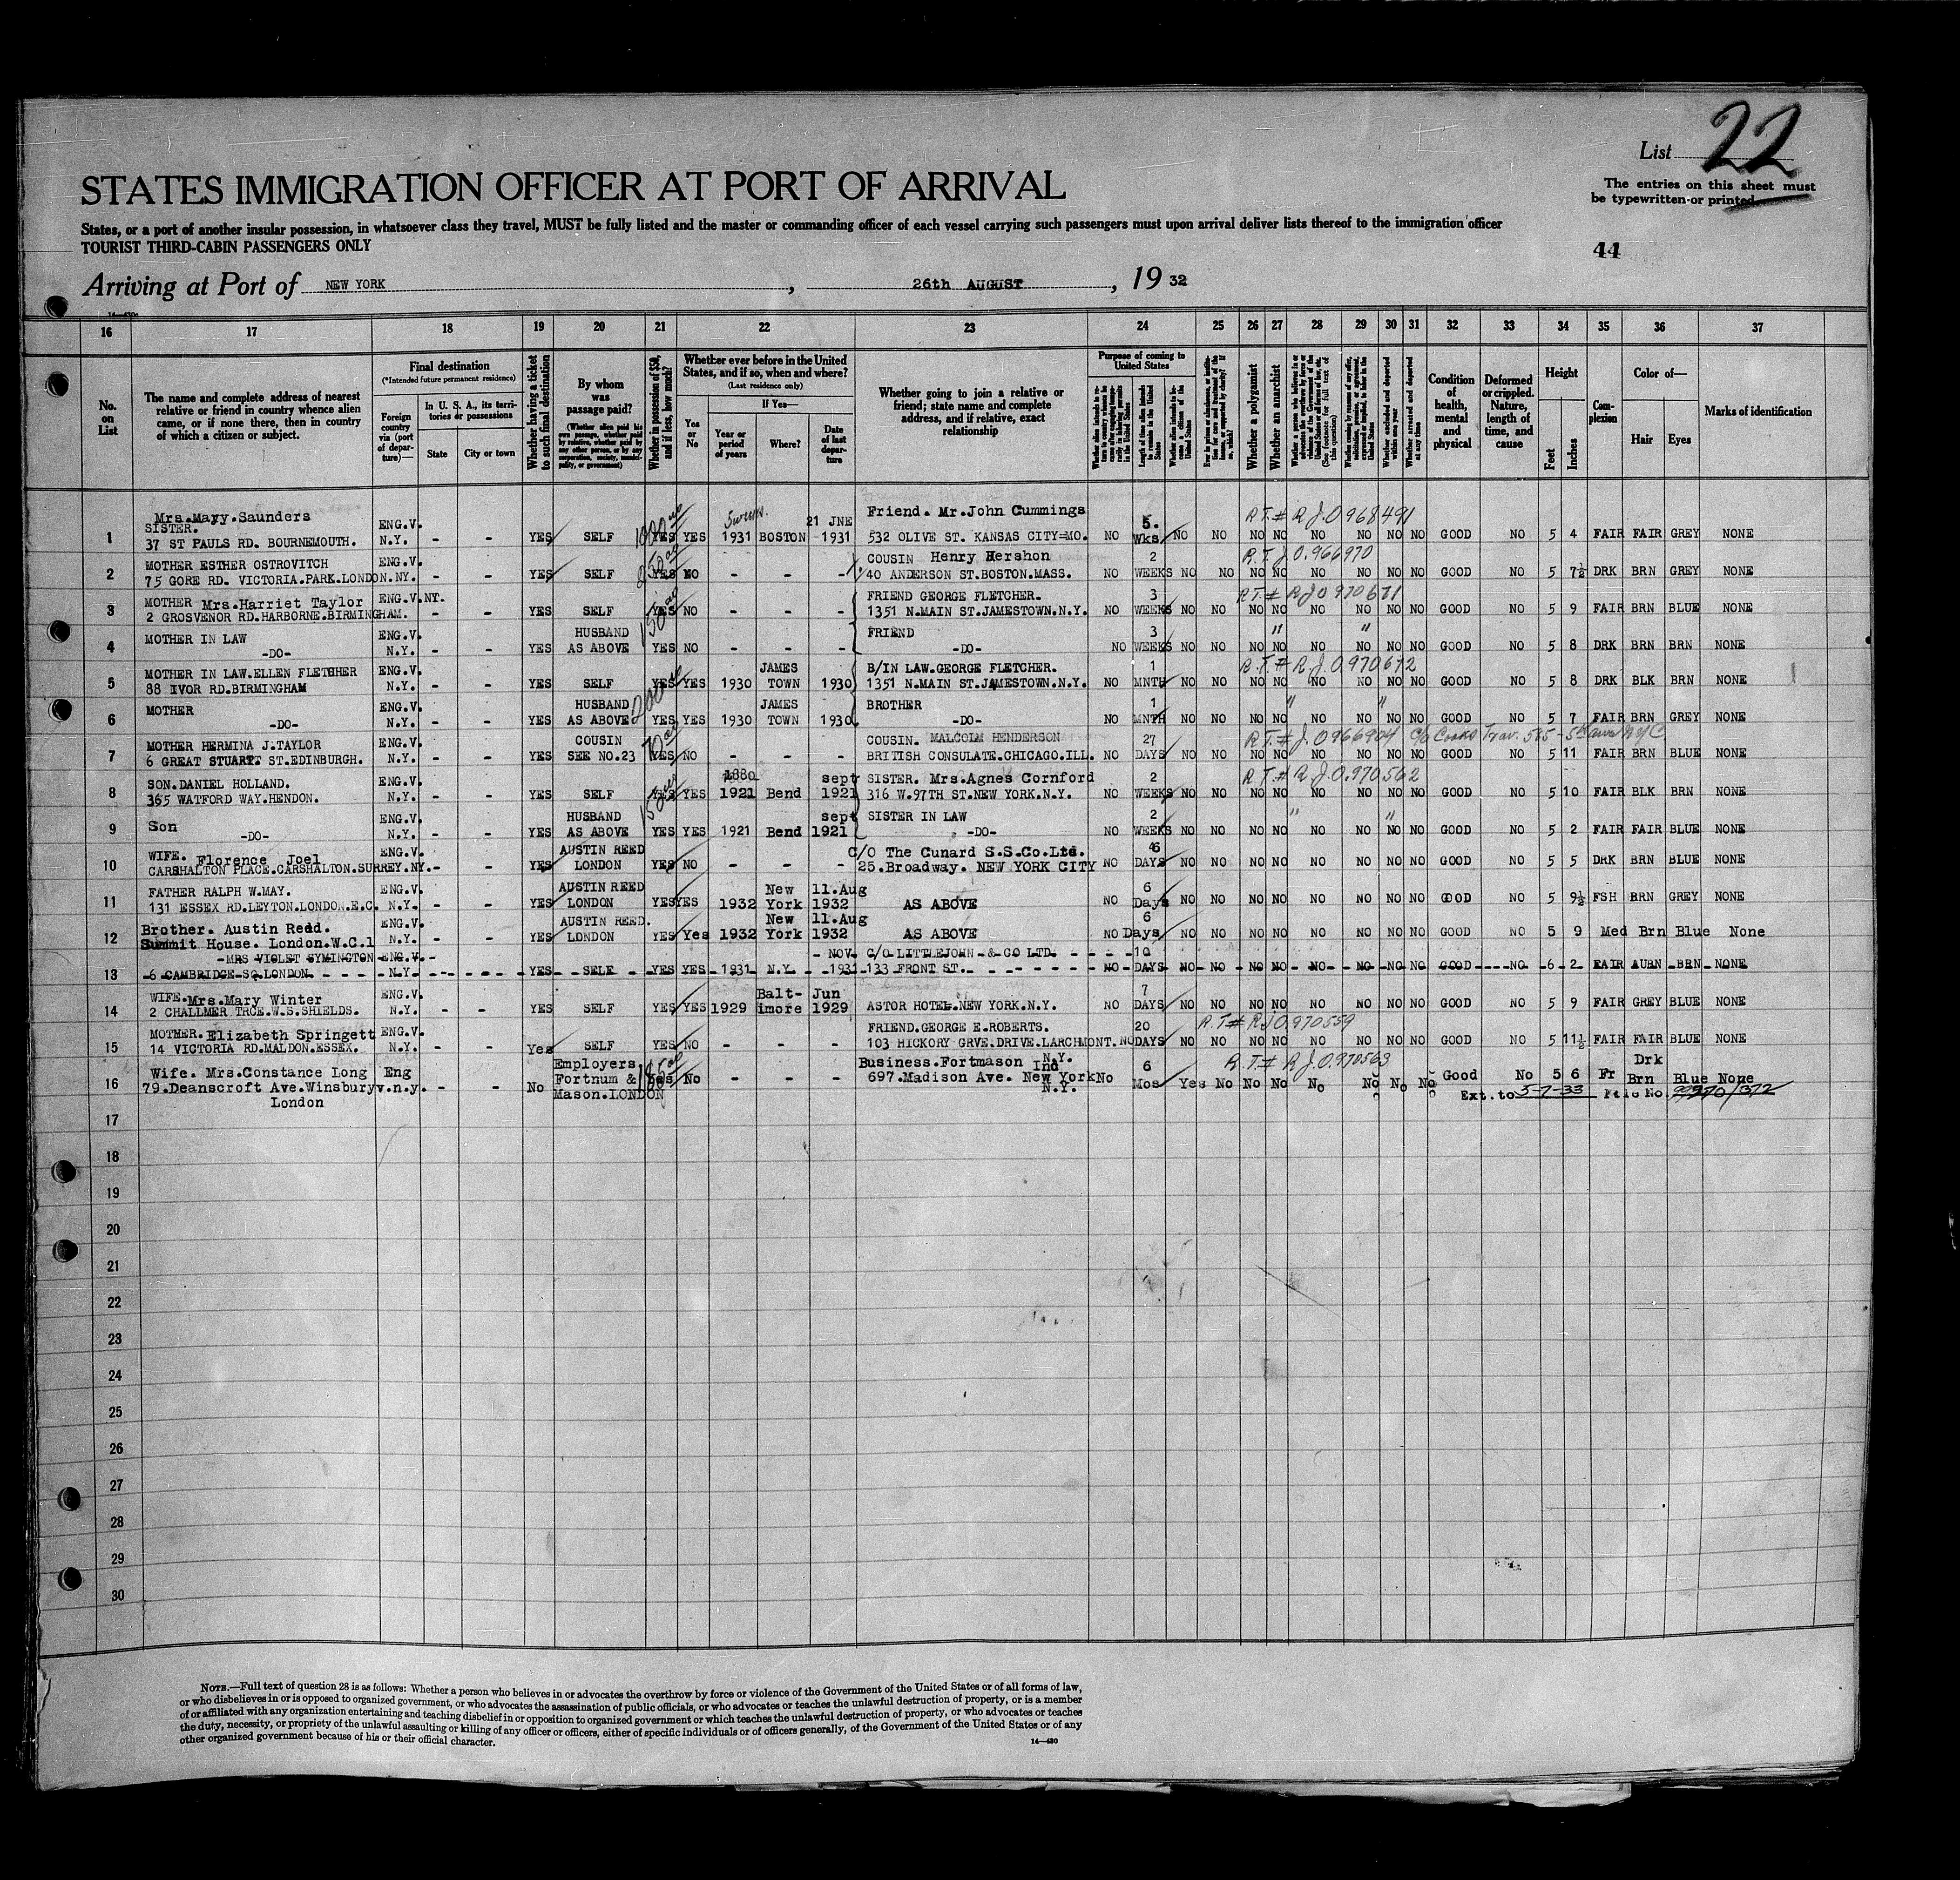 List 22
The entries on this sheet must
be typewritten or printed
STATES IMMIGRATION OFFICER AT PORT OF ARRIVAL
States, or a port of another insular possession, in whatsoever class they travel, MUST be fully listed and the master or commanding officer of each vessel carrying such passengers must upon arrival deliver lists thereof to the immigration officer
TOURIST THIRD-CABIN PASSENGERS ONLY
44
Arriving at Port of NEW YORK, 26th AUGUST, 19 32
16 17 18 19 20 21 22 23 24 25 26 27 28 29 30 31 32 33 34 35 36 37
No. on List
The name and complete address of nearest
relative or friend in country whence alien
came, or if none there, then in country
of which a citizen or subject.
Final destination
(*Intended future permanent residence)
Foreign country via (port of departure)—
In U. S. A., its territories or possessions
State
City or town
Whether having a ticket to such final destination
By whom was passage paid?
(Whether alien paid his own passage, whether paid by relative, whether paid by any other person, or by any corporation, society, municipality, or government)
Whether in possession of $50, and if less, how much?
Whether ever before in the United States, and if so, when and where?
(Last residence only)
Yes or No
If Yes—
Year or period of years
Where?
Date of last departure
Whether going to join a relative or
friend; state name and complete
address, and if relative, exact
relationship
Purpose of coming to United States
Length of time alien intends to remain in the United States
Whether a polygamist
Whether an anarchist
(See footnote for full text of this question)
Whether arrested and deported at any time
Condition of health, mental and physical
Deformed or crippled. Nature, length of time, and cause
Height
Feet
Inches
Complexion
Color of—
Hair
Eyes
Marks of identification
R.T.# R.J.0968491
1 Mrs.Mary.Saunders SISTER. 37 ST PAULS RD. BOURNEMOUTH. ENG.V. N.Y. - - YES SELF YES YES 1931 BOSTON 21 JNE 1931 Friend. Mr.John Cummings 532 OLIVE ST. KANSAS CITY=MO. NO 5. Wks NO NO NO NO NO NO NO NO GOOD NO 5 4 FAIR FAIR GREY NONE
R.T.J 0.966970
2 MOTHER ESTHER OSTROVITCH 75 GORE RD. VICTORIA.PARK.LONDON. ENG.V. NY. - - YES SELF YES NO - - - COUSIN Henry Hershon 40 ANDERSON ST.BOSTON.MASS. NO 2 WEEKS NO NO NO NO NO NO NO NO GOOD NO 5 7½ DRK BRN GREY NONE
R.T.# R.J 0970671
3 MOTHER Mrs.Harriet Taylor 2 GROSVENOR RD.HARBORNE.BIRMINGHAM. ENG.V.NY. - - YES SELF YES NO - - - FRIEND GEORGE FLETCHER. 1351 N.MAIN ST.JAMESTOWN.N.Y. NO 3 WEEKS NO NO NO NO NO NO NO NO GOOD NO 5 9 FAIR BRN BLUE NONE
4 MOTHER IN LAW -DO- ENG.V. N.Y. - - YES HUSBAND AS ABOVE YES NO - - - FRIEND -DO- NO 3 WEEKS NO NO NO NO NO NO NO NO GOOD NO 5 8 DRK BRN BRN NONE
R.T.# R.J.0.970672
5 MOTHER IN LAW.ELLEN FLETCHER 88 IVOR RD.BIRMINGHAM ENG.V. N.Y. - - YES SELF YES YES 1930 JAMES TOWN 1930 B/IN LAW.GEORGE FLETCHER. 1351 N.MAIN ST.JAMESTOWN.N.Y. NO 1 MNTH NO NO NO NO NO NO NO NO GOOD NO 5 8 DRK BLK BRN NONE
6 MOTHER -DO- ENG.V. N.Y. - - YES HUSBAND AS ABOVE YES YES 1930 JAMES TOWN 1930 BROTHER -DO- NO 1 MNTH NO NO NO NO NO NO NO NO GOOD NO 5 7 FAIR BRN GREY NONE
R.T.# J.0966904 c/o Cooks Trav. 585 - 5th Ave NYC
7 MOTHER HERMINA J.TAYLOR 6 GREAT STUART ST.EDINBURGH. ENG.V. N.Y. - - YES COUSIN SEE NO.23 YES NO - - - COUSIN. MALCOLM HENDERSON BRITISH CONSULATE.CHICAGO.ILL. NO 27 DAYS NO NO NO NO NO NO NO NO GOOD NO 5 11 FAIR BRN BLUE NONE
R.T.# R.J.0.970562
8 SON.DANIEL HOLLAND. 365 WATFORD WAY.HENDON. ENG.V. N.Y. - - YES SELF YES YES 1880 1921 Bend sept 1921 SISTER. Mrs.Agnes Cornford 316 W.97TH ST.NEW YORK.N.Y. NO 2 WEEKS NO NO NO NO NO NO NO NO GOOD NO 5 10 FAIR BLK BRN NONE
9 Son -DO- ENG.V. N.Y. - - YES HUSBAND AS ABOVE YES YES 1921 Bend sept 1921 SISTER IN LAW -DO- NO 2 WEEKS NO NO NO NO NO NO NO NO GOOD NO 5 2 FAIR FAIR BLUE NONE
10 WIFE. Florence Joel CARSHALTON PLACE.CARSHALTON.SURREY. ENG.V. NY. - - YES AUSTIN REED LONDON YES NO - - - C/O The Cunard S.S.Co.Ltd. 25.Broadway. NEW YORK CITY NO 6 DAYS NO NO NO NO NO NO NO NO GOOD NO 5 5 DRK BRN BLUE NONE
11 FATHER RALPH W.MAY. 131 ESSEX RD.LEYTON.LONDON.E.C. ENG.V. N.Y. - - YES AUSTIN REED LONDON YES YES 1932 New York 11.Aug 1932 AS ABOVE NO 6 Days NO NO NO NO NO NO NO NO GOOD NO 5 9½ FSH BRN GREY NONE
12 Brother. Austin Reed. Summit House. London.W.C.1 ENG.V. N.Y. - - YES AUSTIN REED. LONDON YES Yes 1932 New York 11.Aug 1932 AS ABOVE NO 6 Days NO NO NO NO NO NO NO NO GOOD NO 5 9 Med Brn Blue None
13 MRS VIOLET SYMINGTON 6 CAMBRIDGE SQ.LONDON. ENG.V. N.Y. - - YES SELF YES YES 1931 N.Y. NOV. 1931 C/O LITTLEJOHN & CO LTD. 133 FRONT ST. NO 10 DAYS NO NO NO NO NO NO NO NO GOOD NO 6 2 FAIR AURN BRN NONE
14 WIFE.Mrs.Mary Winter 2 CHALLMER TRCE.W.S.SHIELDS. ENG.V. N.Y. - - YES SELF YES YES 1929 Balt-imore Jun 1929 ASTOR HOTEL.NEW YORK.N.Y. NO 7 DAYS NO NO NO NO NO NO NO NO GOOD NO 5 9 FAIR GREY BLUE NONE
R.T.# R.J 0.970559
15 MOTHER.Elizabeth Springett 14 VICTORIA RD.MALDON.ESSEX. ENG.V. N.Y. - - Yes SELF YES NO - - - FRIEND.GEORGE E.ROBERTS. 103 HICKORY GRVE.DRIVE.LARCHMONT. N.Y. NO 20 DAYS NO NO NO NO NO NO NO NO GOOD NO 5 11½ FAIR FAIR BLUE NONE
R.T.# R.J.0.970563
16 Wife. Mrs.Constance Long 79.Deanscroft Ave.Winsbury London Eng v.n.y. - - No Employers Fortnum & Mason.LONDON Yes No - - - Business.Fortmason Ind 697.Madison Ave. New York N.Y. No 6 Mos Yes No No No No No No No Good No 5 6 Fr Drk Brn Blue None
Ext.to 5-7-33 File No.
17
18
19
20
21
22
23
24
25
26
27
28
29
30
NOTE.—Full text of question 28 is as follows: Whether a person who believes in or advocates the overthrow by force or violence of the Government of the United States or of all forms of law,
or who disbelieves in or is opposed to organized government, or who advocates the assassination of public officials, or who advocates or teaches the unlawful destruction of property, or is a member
of or affiliated with any organization entertaining and teaching disbelief in or opposition to organized government or which teaches the unlawful destruction of property, or who advocates or teaches
the duty, necessity, or propriety of the unlawful assaulting or killing of any officer or officers, either of specific individuals or of officers generally, of the Government of the United States or of any
other organized government because of his or their official character.
14—430